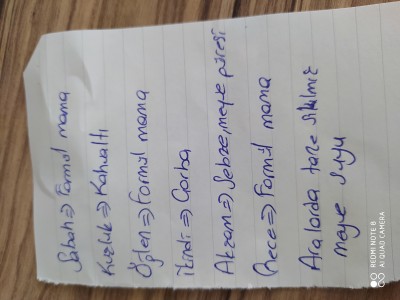 Sabah => Formül mama
Kuşluk => Kahvaltı
Öğlen => Formül mama
İkindi => Çorba
Akşam => Sebze, meyve püresi
Gece => Formül mama
Aralarda taze sıkılmış
meyve suyu
REDMI NOTE 8
AI QUAD CAMERA